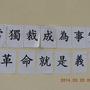 當獨裁成為事實
革命就是義務
2014.03.23